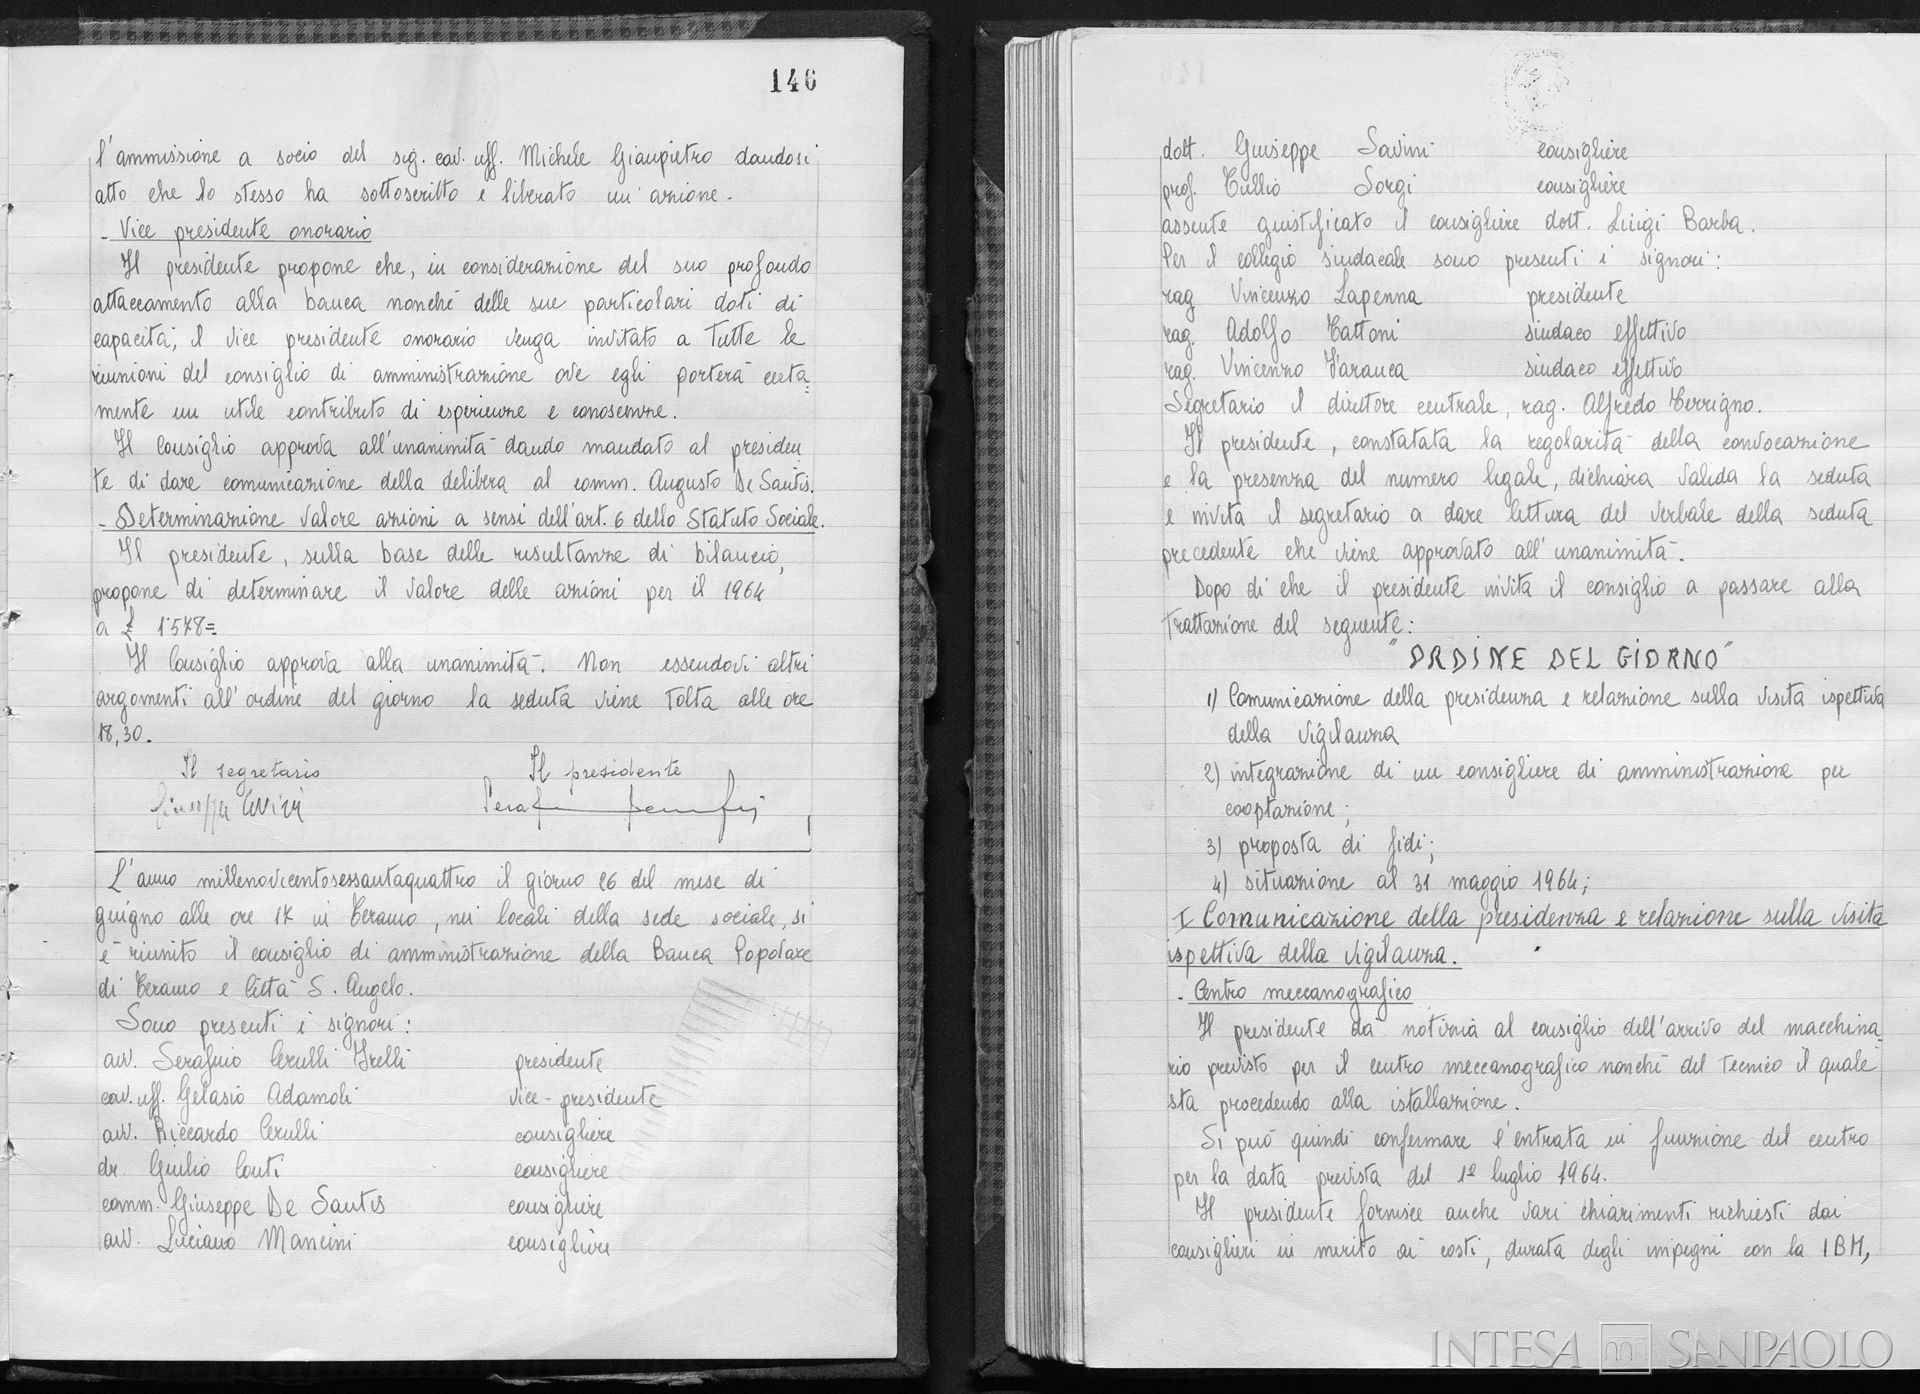 146
l'ammissione a socio del sig. cav. uff. Michele Giampietro dandosi
atto che lo stesso ha sottoscritto e liberato un'azione.
- Vice presidente onorario
Il presidente propone che, in considerazione del suo profondo
attaccamento alla banca nonché delle sue particolari doti di
capacità, il vice presidente onorario venga invitato a tutte le
riunioni del consiglio di amministrazione ove egli porterà certa=
mente un utile contributo di esperienze e conoscenze.
Il Consiglio approva all'unanimità dando mandato al presiden
te di dare comunicazione della delibera al comm. Augusto De Santis.
- Determinazione valore azioni a sensi dell'art. 6 dello Statuto Sociale.
Il presidente, sulla base delle risultanze di bilancio,
propone di determinare il valore delle azioni per il 1964
a £ 1578=
Il Consiglio approva alla unanimità. Non essendovi altri
argomenti all'ordine del giorno la seduta viene tolta alle ore
18,30.
Il segretario Il presidente
L'anno millenovecentosessantaquattro il giorno 26 del mese di
giugno alle ore 17 in Teramo, nei locali della sede sociale, si
è riunito il consiglio di amministrazione della Banca Popolare
di Teramo e Città S. Angelo.
Sono presenti i signori:
avv. Serafino Cerulli Irelli presidente
cav. uff. Gelasio Adamoli vice-presidente
avv. Riccardo Cerulli consigliere
dr. Giulio Conti consigliere
comm. Giuseppe De Santis consigliere
avv. Luciano Mancini consigliere
dott. Giuseppe Savini consigliere
prof. Tullio Sorgi consigliere
assente giustificato il consigliere dott. Luigi Barba.
Per il collegio sindacale sono presenti i signori:
rag Vincenzo Lapenna presidente
rag. Adolfo Tattoni sindaco effettivo
rag. Vincenzo Varanca sindaco effettivo
Segretario il direttore centrale, rag. Alfredo Terrigno.
Il presidente, constatata la regolarità della convocazione
e la presenza del numero legale, dichiara valida la seduta
e invita il segretario a dare lettura del verbale della seduta
precedente che viene approvato all'unanimità.
Dopo di che il presidente invita il consiglio a passare alla
trattazione del seguente:
"ORDINE DEL GIORNO"
1) Comunicazione della presidenza e relazione sulla visita ispettiva
della vigilanza
2) integrazione di un consigliere di amministrazione per
cooptazione;
3) proposta di fidi;
4) situazione al 31 maggio 1964;
I Comunicazione della presidenza e relazione sulla visita
ispettiva della vigilanza.
- Centro meccanografico
Il presidente da notizia al consiglio dell'arrivo del macchina=
rio previsto per il centro meccanografico nonché del tecnico il quale
sta procedendo alla istallazione.
Si può quindi confermare l'entrata in funzione del centro
per la data prevista del 1º luglio 1964.
Il presidente fornisce anche vari chiarimenti richiesti dai
consiglieri in merito ai costi, durata degli impegni con la IBM,
INTESA SANPAOLO